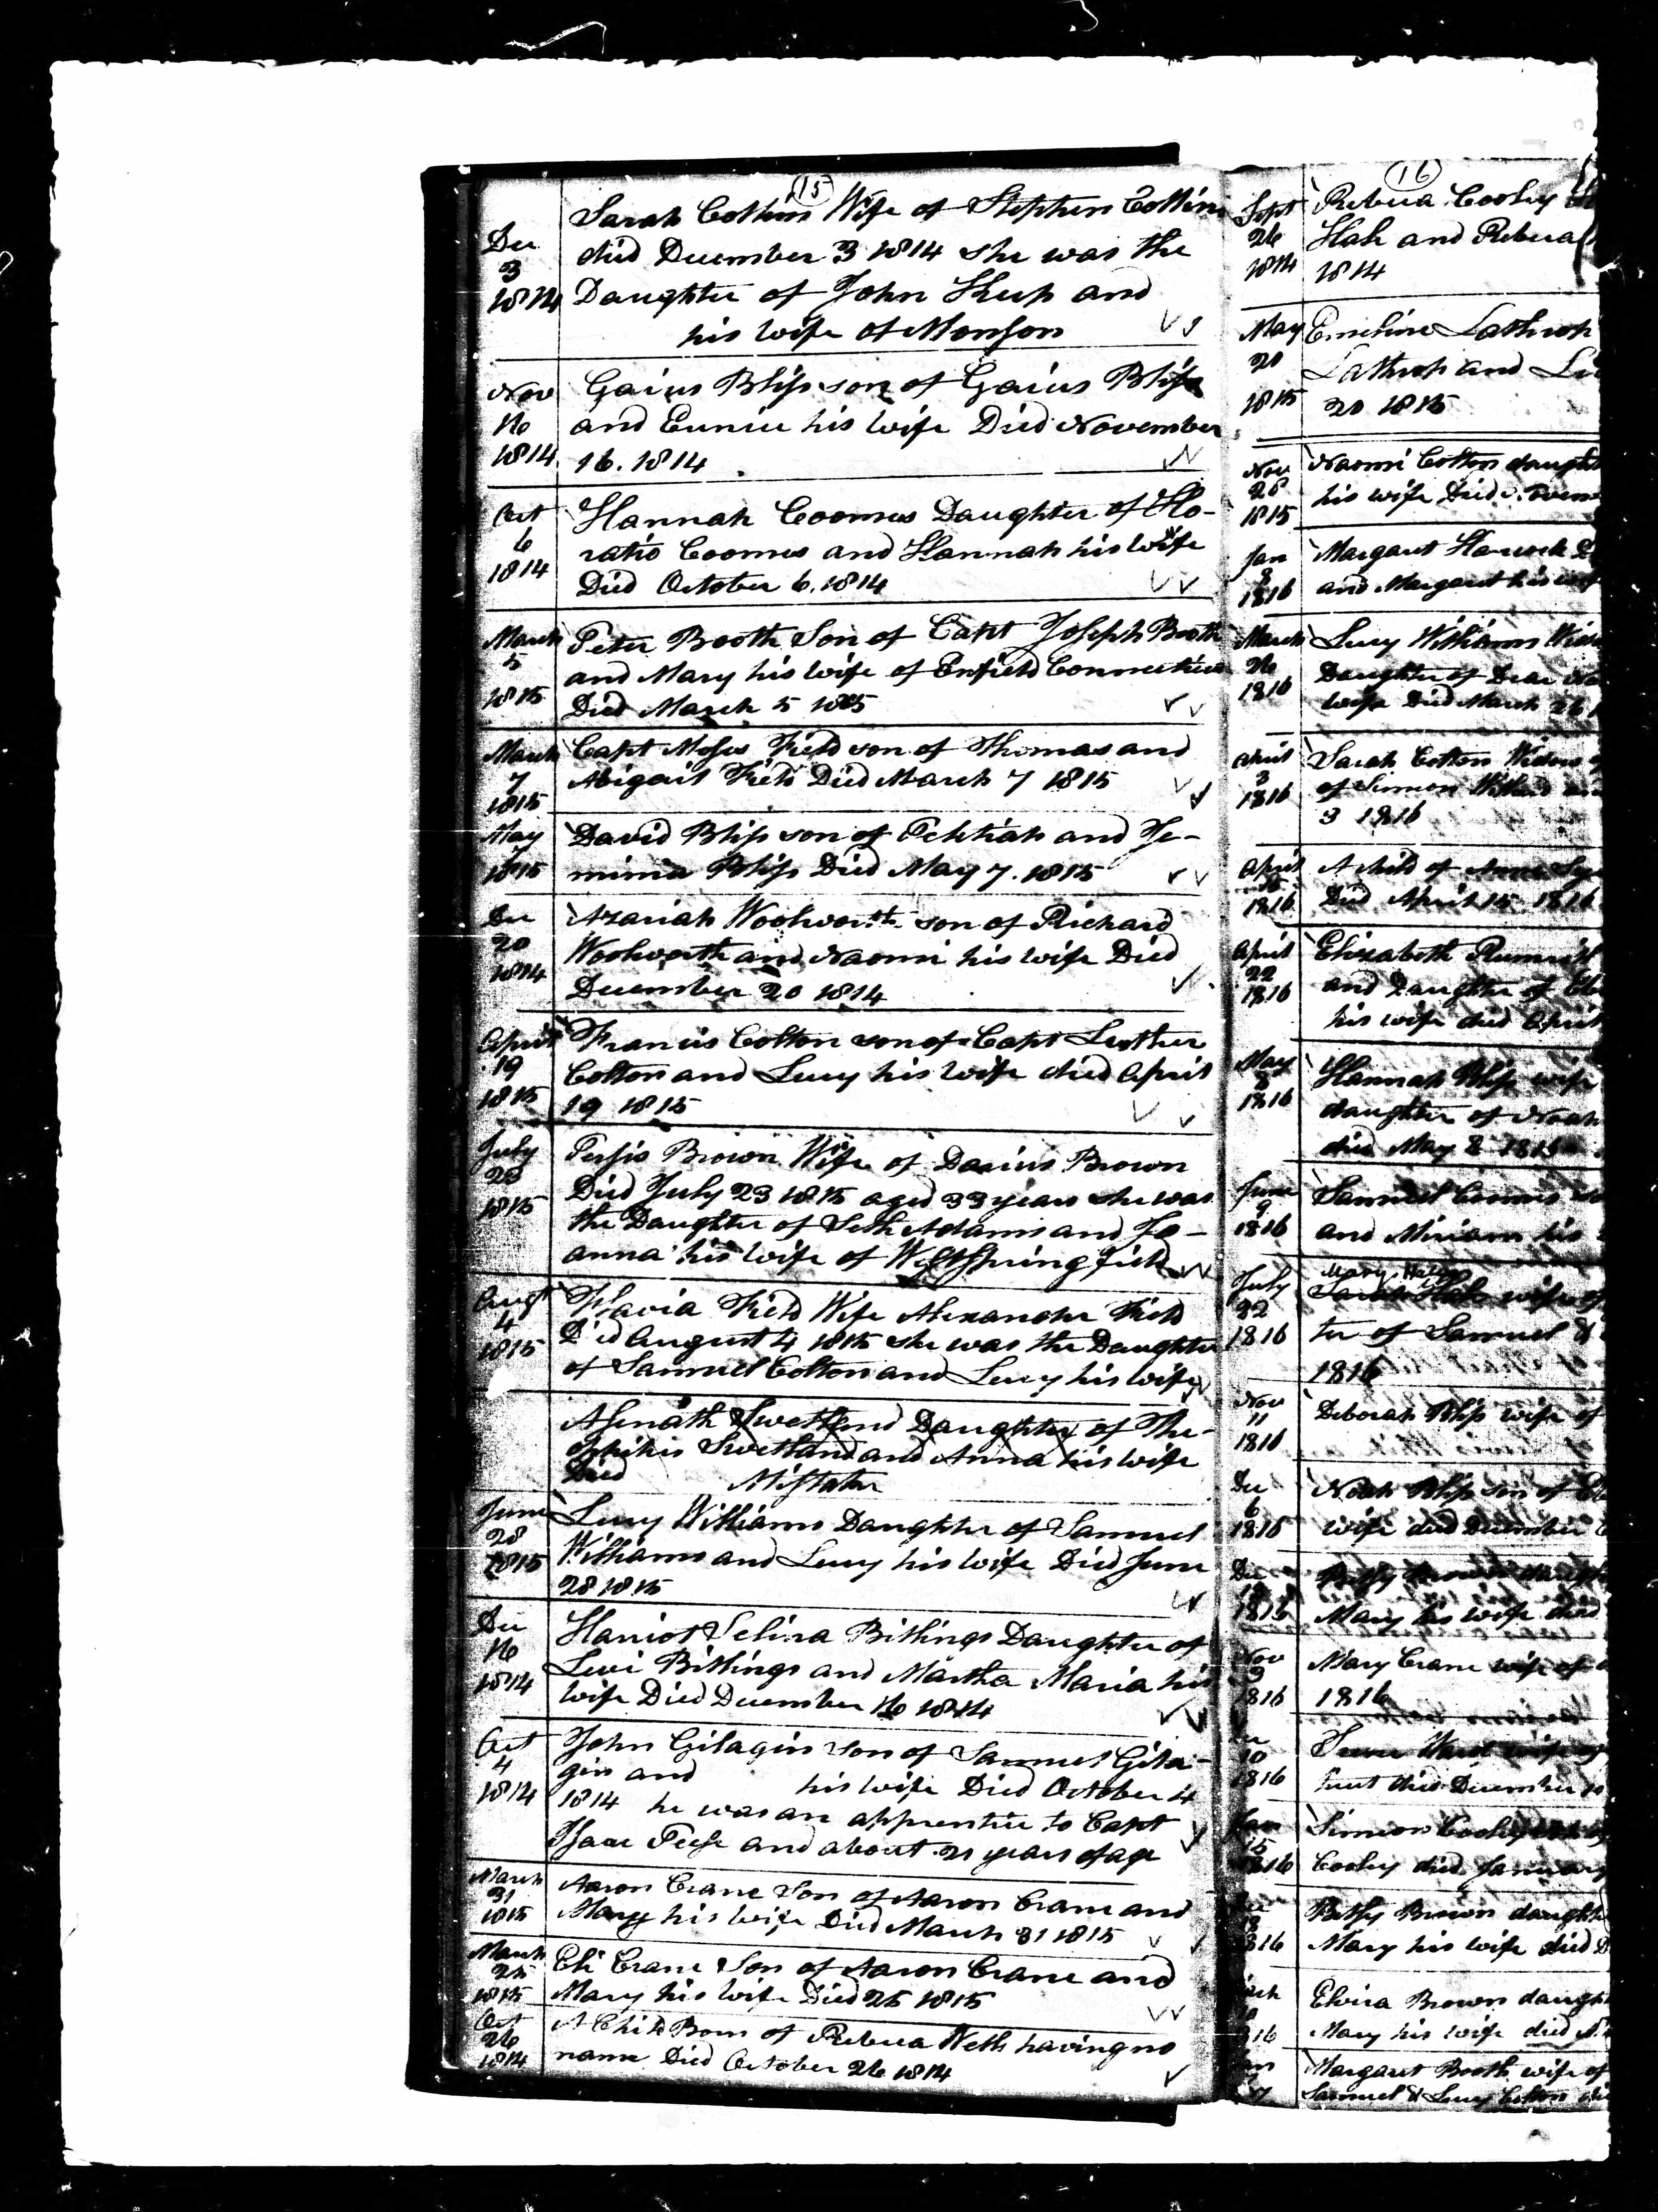 15
Dec
3
1814
Sarah Cotton Wife of Stephen Cotton
died December 3 1814 she was the
Daughter of John Keep and
his wife of Monson
Nov
16
1814
Gaius Bliss son of Gaius Bliss
and Eunice his wife Died November
16. 1814
Oct
6
1814
Hannah Coomes Daughter of Ho-
ratio Coomes and Hannah his wife
Died October 6. 1814
March
5
1815
Peter Booth Son of Capt Joseph Booth
and Mary his wife of Enfield Connecticut
Died March 5 1815
March
7
1815
Capt Moses Field son of Thomas and
Abigail Field Died March 7 1815
May
7
1815
David Bliss son of Peletiah and Je-
mima Bliss Died May 7. 1815
Dec
20
1814
Azariah Woolworth son of Richard
Woolworth and Naomi his wife Died
December 20 1814
April
19
1815
Francis Colton son of Capt Luther
Colton and Lucy his wife died April
19 1815
July
23
1815
Persis Brown Wife of Darius Brown
Died July 23 1815 aged 33 years she was
the Daughter of Seth Adams and Jo-
anna his wife of West Springfield
Augt
4
1815
Flavia Field Wife Alexander Field
Died August 4 1815 she was the Daughter
of Samuel Colton and Lucy his wife
Asenath Swetland Daughter of The-
ophilus Swetland and Anna his wife
Died Mistake
June
28
1815
Lucy Williams Daughter of Samuel
Williams and Lucy his wife Died June
28 1815
Dec
16
1814
Harriot Selina Billings Daughter of
Levi Billings and Martha Maria his
wife Died December 16 1814
Oct
4
1814
John Gilagin son of Samuel Gila-
gin and his wife Died October 4
1814 he was an apprentice to Capt
Isaac Pease and about 21 years of age
March
31
1815
Aaron Crane Son of Aaron Crane and
Mary his wife Died March 31 1815
March
25
1815
Eli Crane Son of Aaron Crane and
Mary his wife Died 25 1815
Oct
26
1814
A Child Born of Rebecca Wells having no
name Died October 26 1814
16
Sept
26
1814
Rebecca Cooley
Hale and Rebecca
1814
May
20
1815
Emeline Lathrop
Lathrop and
20 1815
Nov
25
1815
Naomi Colton daught
his wife Died
Jan
8
1816
Margaret Hancock
and Margaret his wife
March
26
1816
Lucy Williams
Daughter of Deac
wife Died March 26
April
3
1816
Sarah Cotton Widow
of Simeon
3 1816
April
15
1816
A child of
Died April 15 1816
April
22
1816
Elizabeth
and Daughter of
his wife died April
May
8
1816
Hannah Bliss wife
daughter of Noah
died May 8 1816
June
9
1816
Samuel Coomes
and Miriam his
July
22
1816
Mary
Hale wife of
ter of Samuel &
1816
Nov
11
1816
Deborah Bliss wife of
Dec
6
1816
Noah Bliss son of
wife died December
Dec
18
1816
Betsy Brown
Mary his wife died
Nov
9
1816
Mary Crane wife of
1816
10
1816
Ward wife of
died December 10
Jan
15
1816
Simeon Cooley
Cooley died January
18
1816
Betsy Brown daught
Mary his wife died
Elvira Brown daught
Mary his wife died
Margaret Booth wife of
Samuel & Lucy Colton